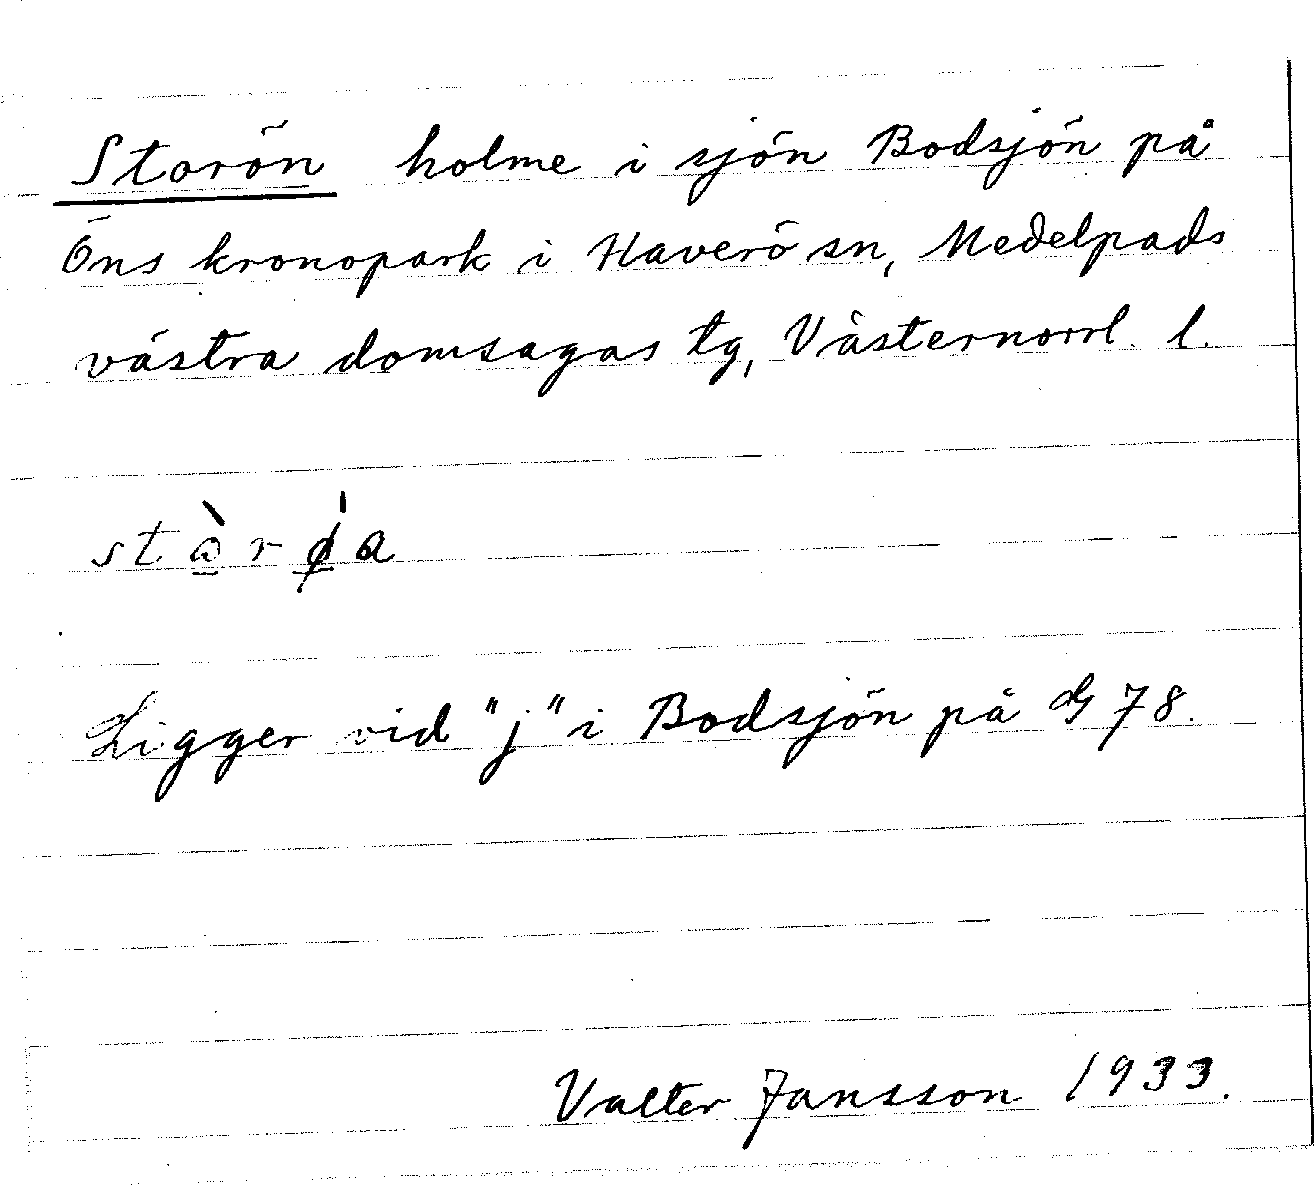 Storön holme i sjön Bodsjön på
Öns kronopark i Haverö sn, Medelpads
västra domsagas tg, Västernorrl. l.
stò̱rǿ̱a
Ligger vid "j" i Bodsjön på G 78.
Valter Jansson 1933.